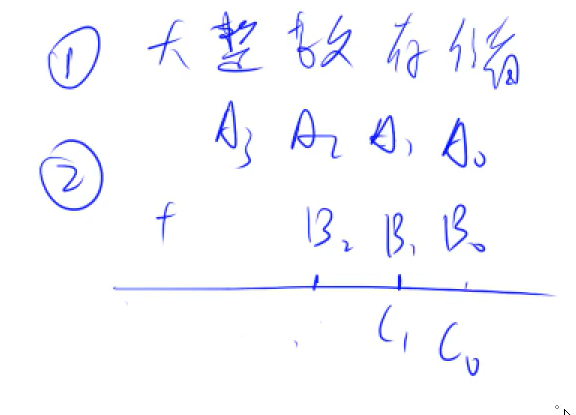 ① 大整数存储
② A₃ A₂ A₁ A₀
+ B₂ B₁ B₀
C₁ C₀